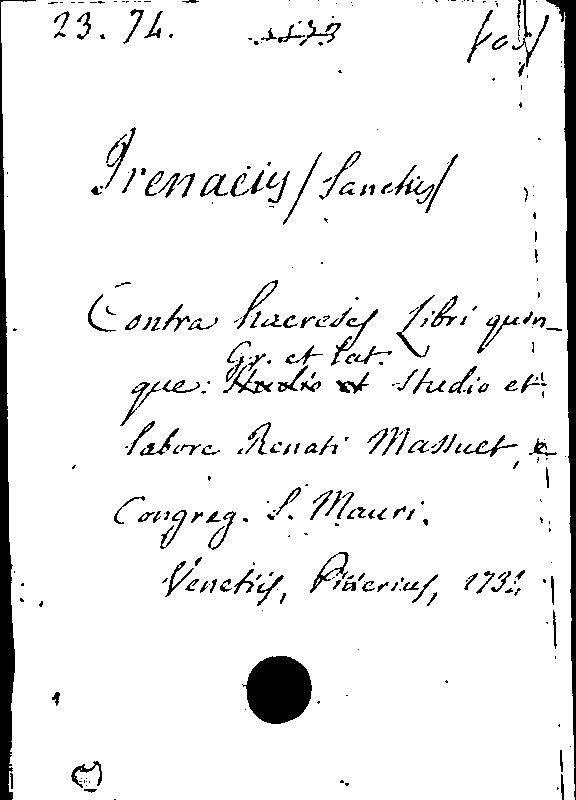 23. 74. 1573 /fos/
Irenaeus /Sanctus/
Contra haereses Libri quin-
Gr. et lat.
que: Studio et Studio et
labore Renati Massuet, e
Congreg. S. Mauri.
Venetiis, Pitterius, 1734